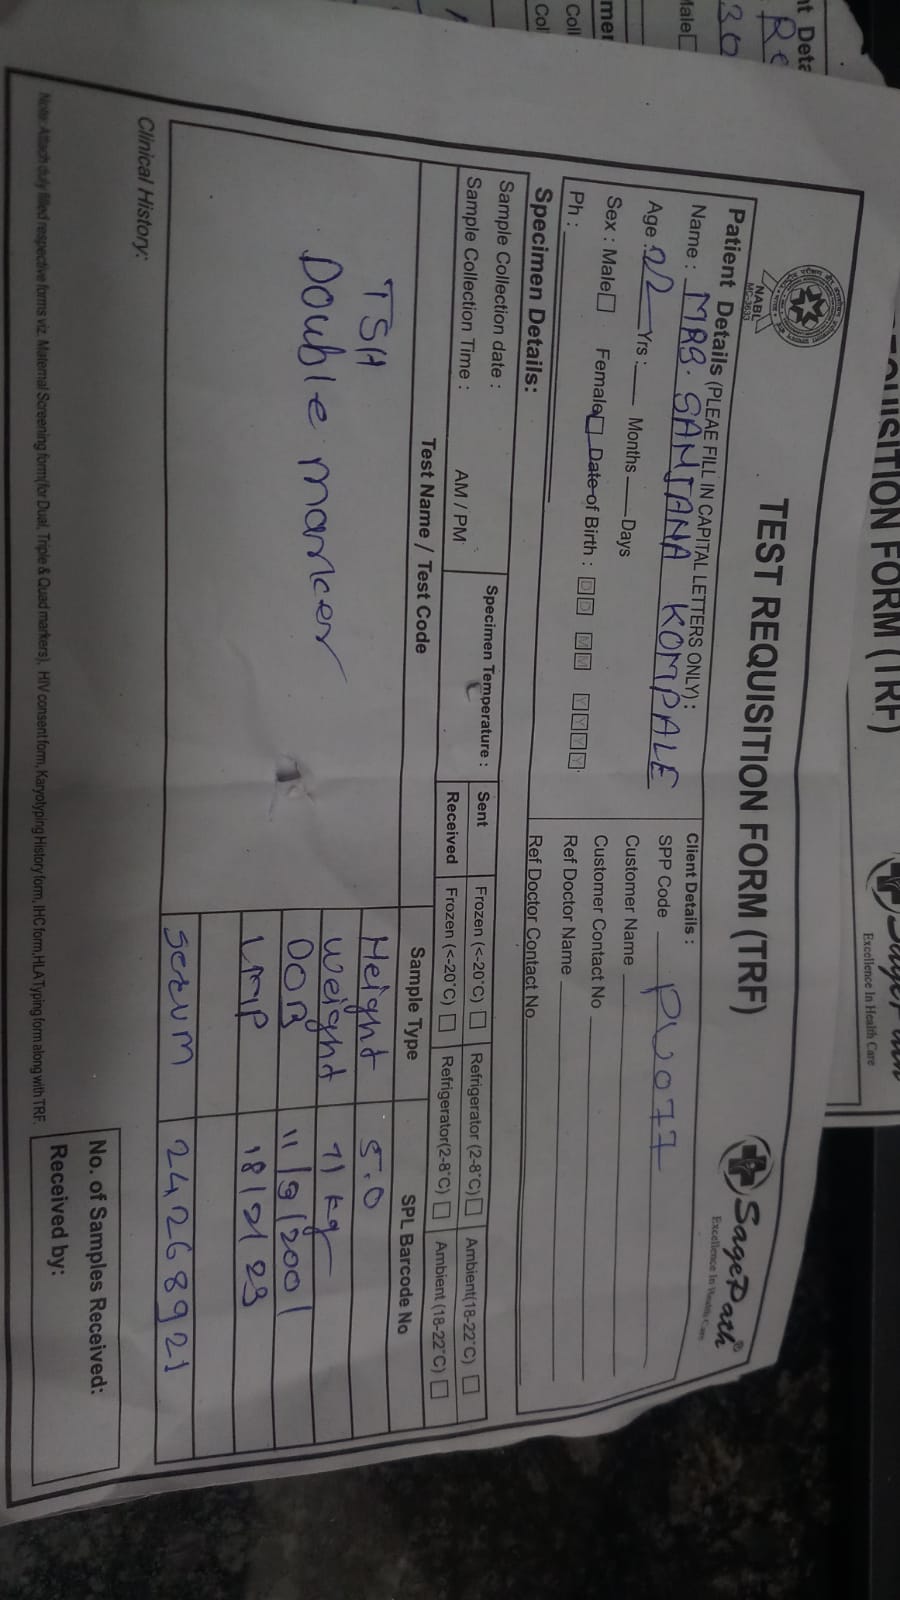 TEST REQUISITION FORM (TRF)
SagePath®
Excellence In Health Care
NABL
MC-3633
Patient Details (PLEAE FILL IN CAPITAL LETTERS ONLY) :
Name : MRS. SANJANA KOMPALE
Age : 22 Yrs : Months Days
Sex : Male Female Date of Birth : D D M M Y Y Y Y
Ph :
Client Details :
SPP Code PU077
Customer Name
Customer Contact No
Ref Doctor Name
Ref Doctor Contact No
Specimen Details:
Sample Collection date :
Sample Collection Time : AM / PM
Specimen Temperature :
Sent Frozen (<-20°C) Refrigerator (2-8°C) Ambient(18-22°C)
Received Frozen (<-20°C) Refrigerator(2-8°C) Ambient (18-22°C)
Test Name / Test Code Sample Type SPL Barcode No
TSH
Double marcer
Height 5.0
Weight 71 kg
DOB 11/9/2001
LMP
Serum 24268921
Clinical History:
Note: Attach duly filled respective forms viz. Maternal Screening form(for Dual, Triple & Quad markers), HIV consent form, Karyotyping History form, IHC form, HLA Typing form along with TRF.
No. of Samples Received:
Received by:
Excellence In Health Care